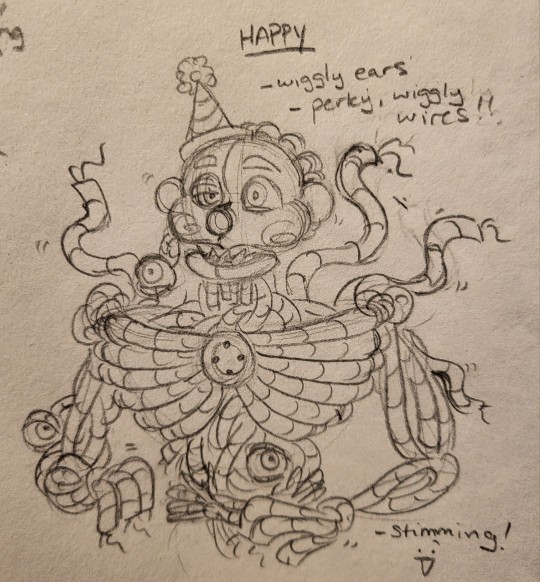 HAPPY
- wiggly ears
- perky, wiggly
wires!!
- stimming!